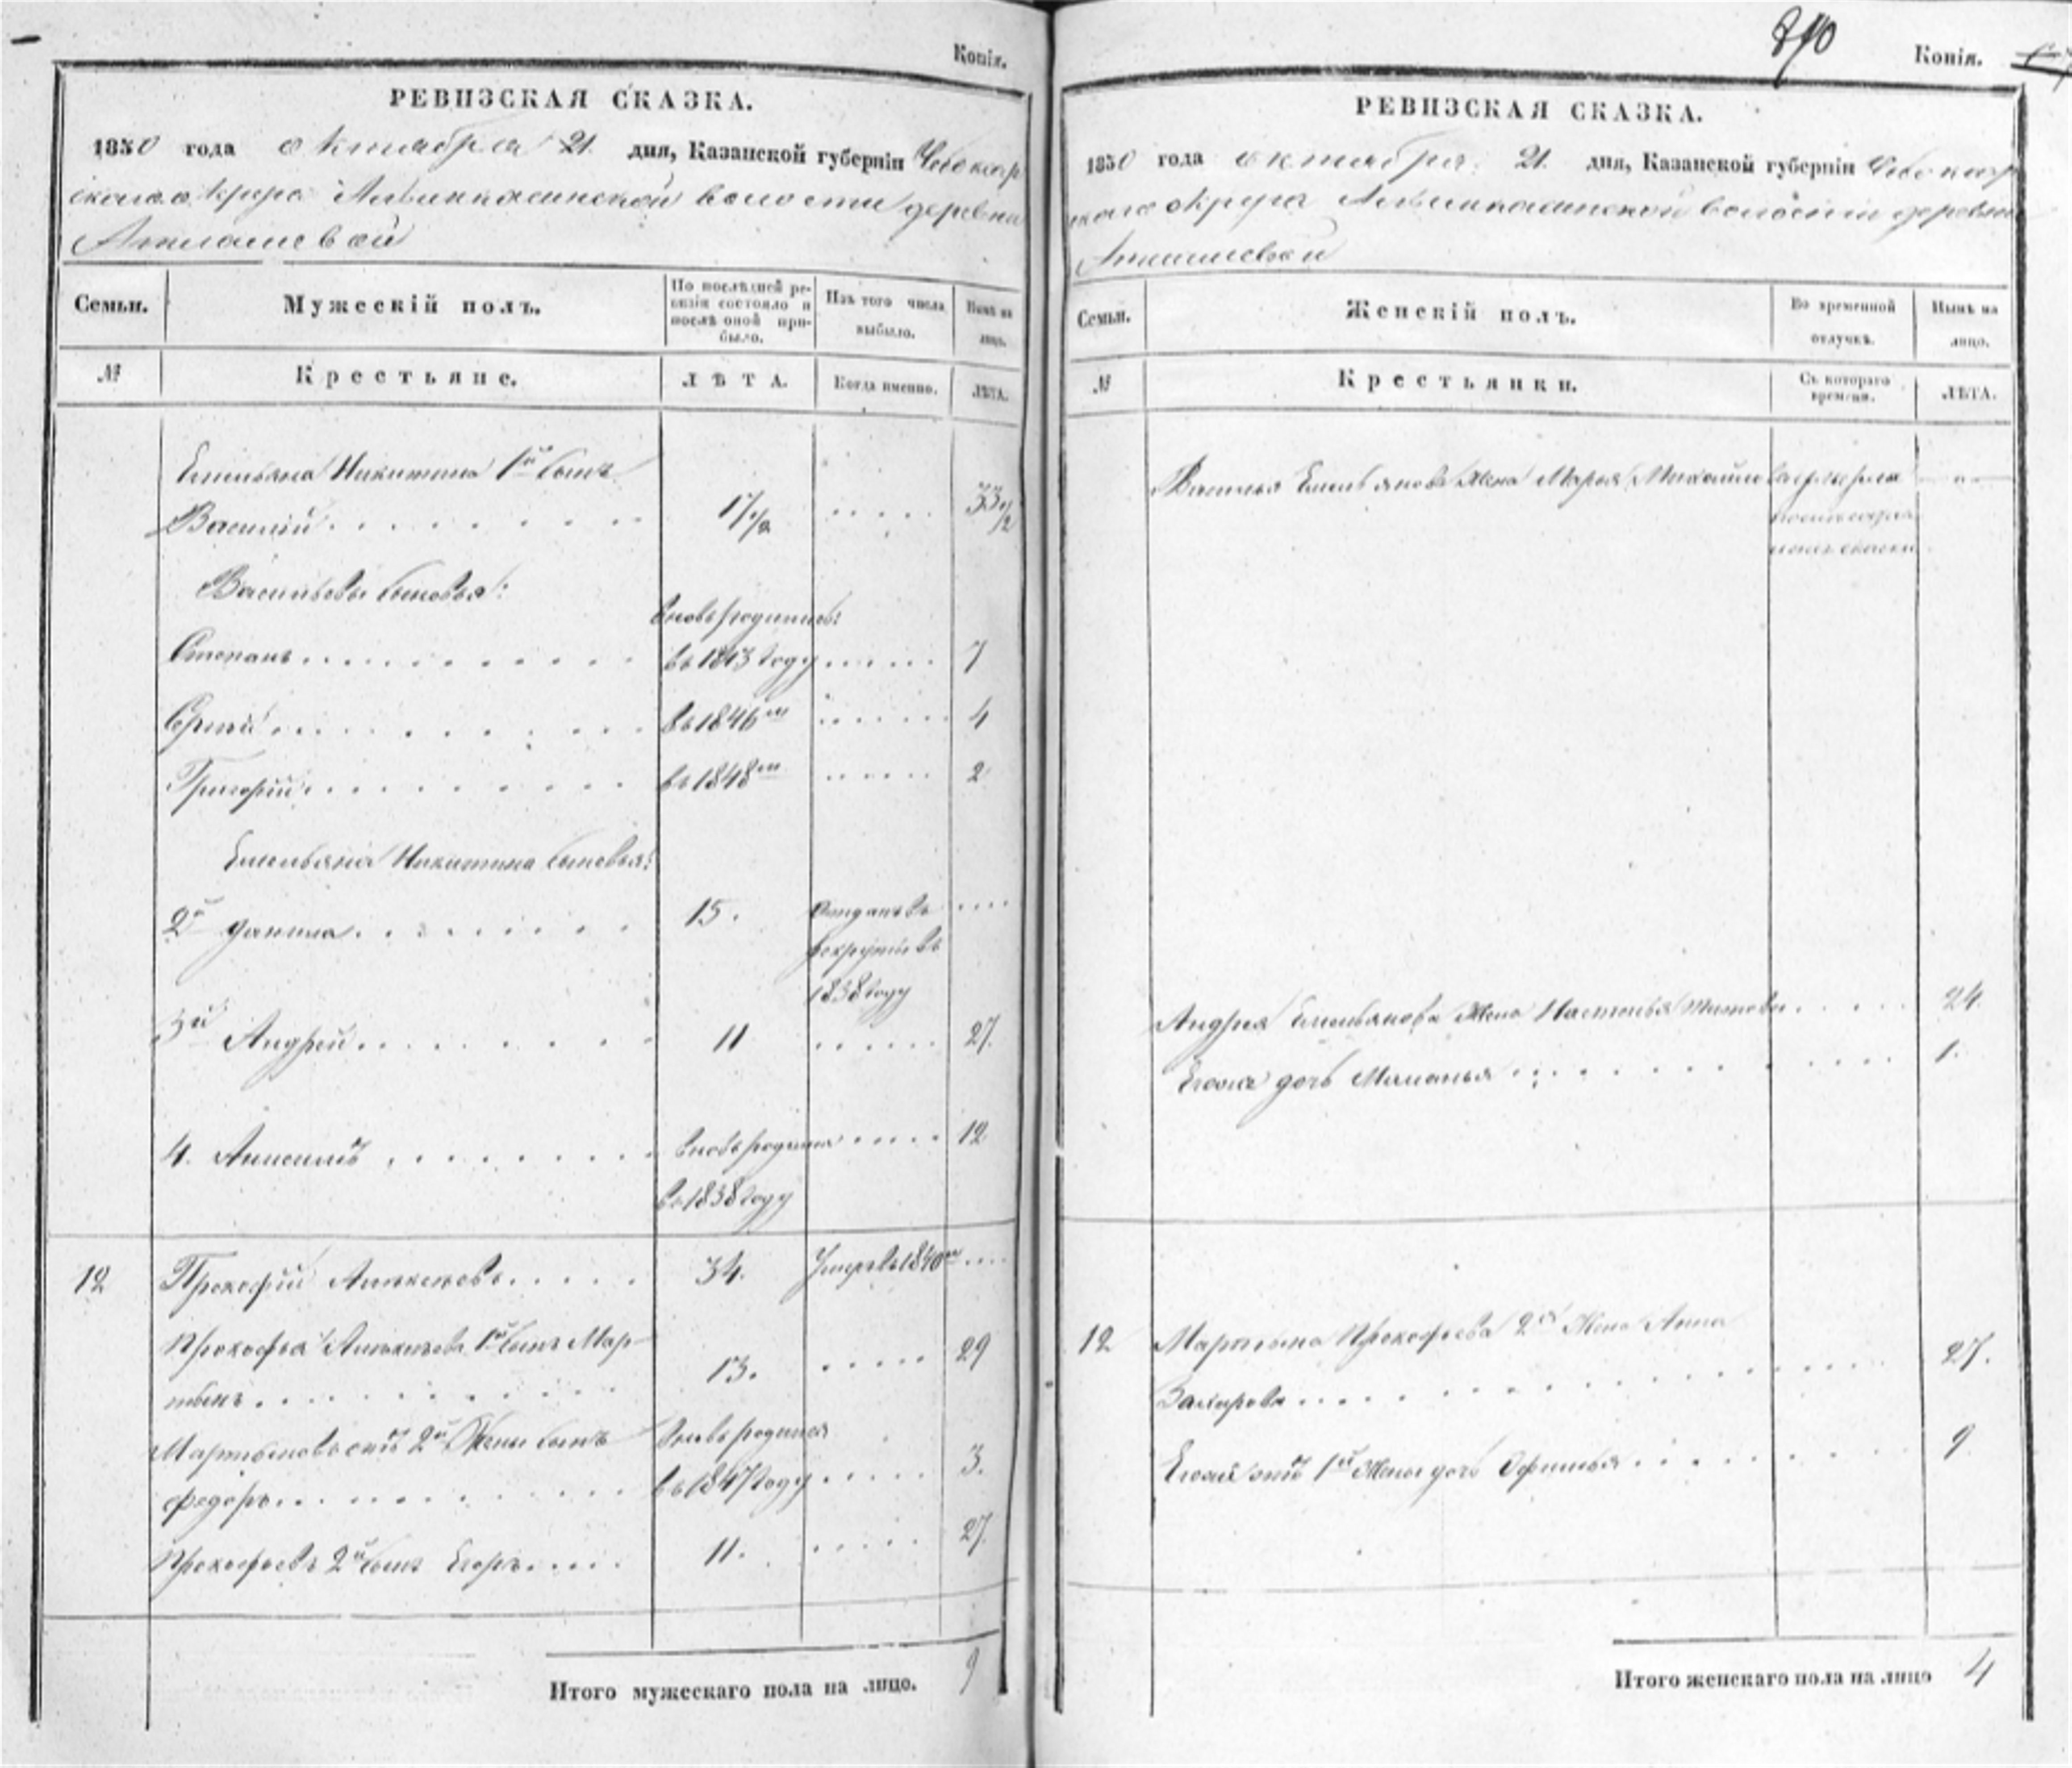 Копія.
РЕВИЗСКАЯ СКАЗКА.
1850 года октября 21 дня, Казанской губерніи Чебоксар
скаго округа волости деревни
Семьи.
Мужескій полъ.
По послѣдней ре-
визіи состояло и
послѣ оной при-
было.
Изъ того числа
выбыло.
Нынѣ на
лицо.
№
Крестьяне.
ЛѢТА.
Когда именно.
ЛѢТА.
Емельяна Никитина 1й сынъ
Василій 17 1/2 33 1/2
Васильевы сыновья:
вновь родились:
Степанъ въ 1843 году 7
Сергѣй въ 1846м 4
Григорій въ 1848м 2
Емельяна Никитина сыновья:
2й Данила 15. отданъ въ
рекруты въ
1838 году
3й Андрей 11 27.
4. вновь родился 12
въ 1838 году
12 Прокофій 34. Умеръ въ 1840м
Прокофья 1й сынъ Мар-
тынъ 13. 29
Мартыновъ отъ 2й жены сынъ вновь родился
Федоръ въ 1847 году 3.
Прокофьевъ 2й сынъ Егоръ 11. 27.
Итого мужескаго пола на лицо. 9
840
Копія.
РЕВИЗСКАЯ СКАЗКА.
1850 года октября 21. дня, Казанской губерніи Чебоксар
скаго округа волости деревни
Семьи.
Женскій полъ.
Во временной
отлучкѣ.
Нынѣ на
лицо.
№
Крестьянки.
Съ котораго
времени.
ЛѢТА.
Василья Емельянова жена Марья Михайлова умерла
Андрея Емельянова жена Настасья Титова 24
Егова дочь Маланья 1.
12 Мартына Прокофьева 2я жена Анна
Захарова 27.
Еговай отъ 1й жены дочь Офимья 9
Итого женскаго пола на лицо 4